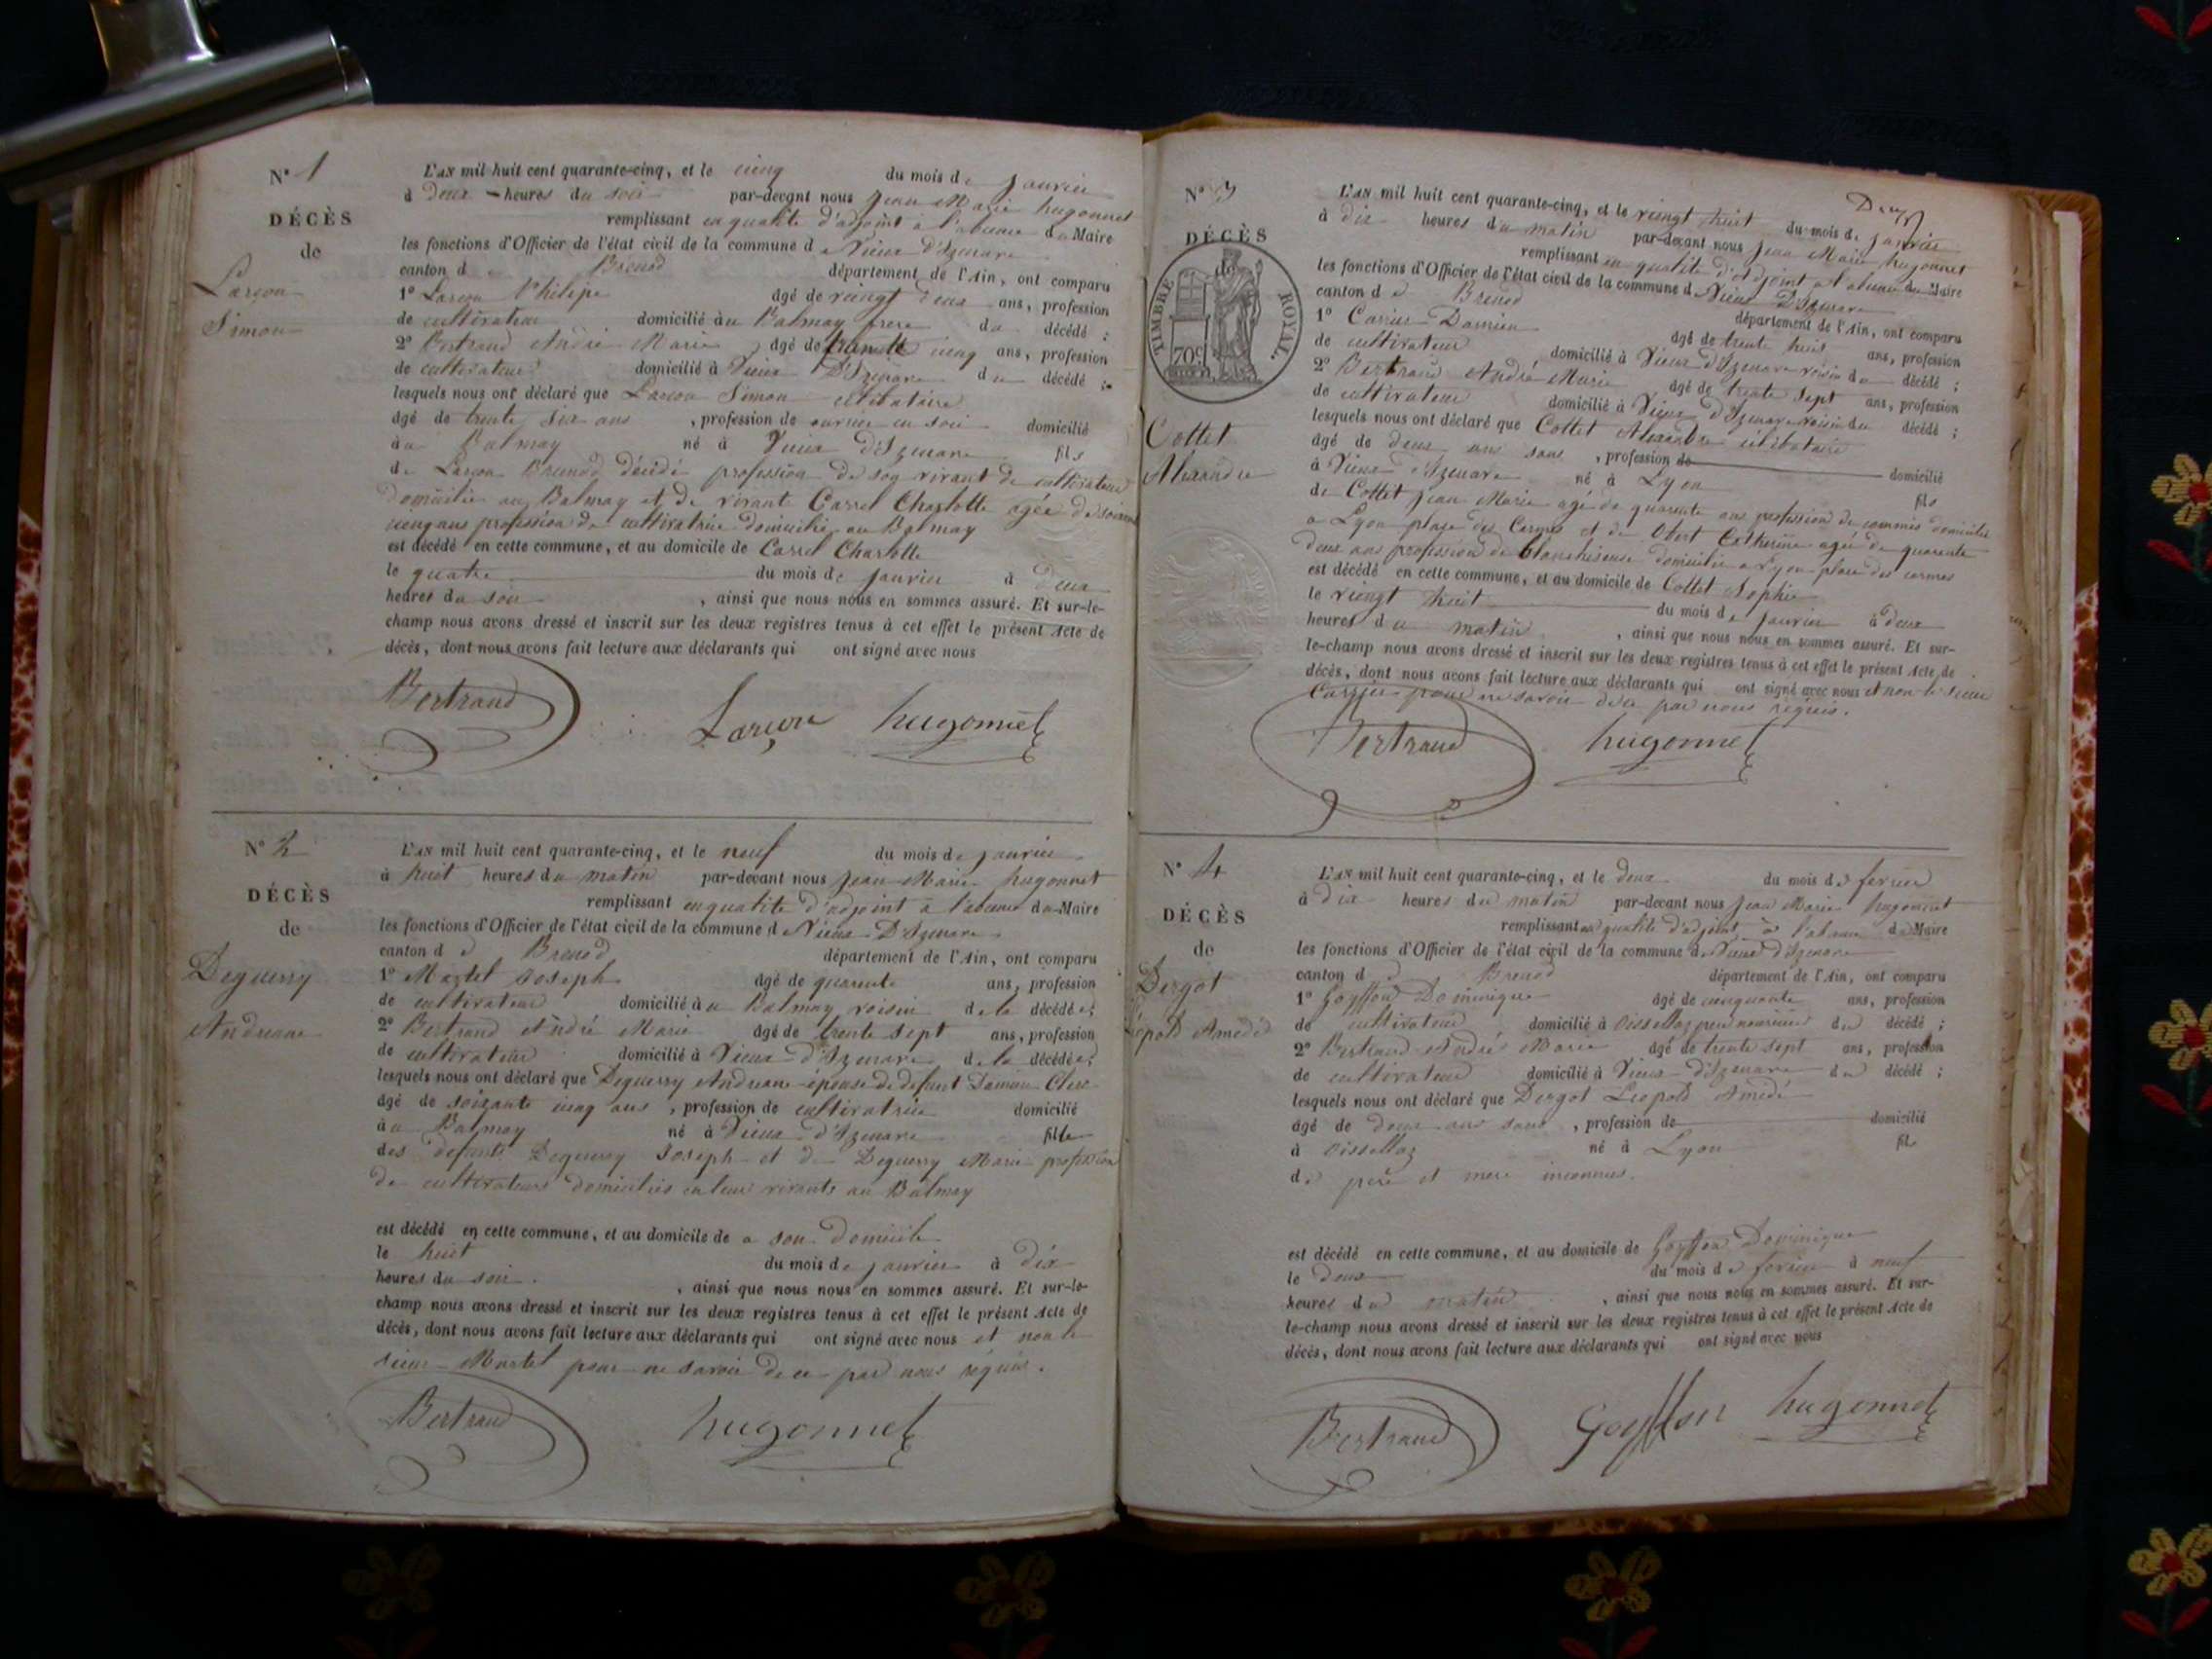 N° 1
DÉCÈS
de
Larçon
Simon
L'an mil huit cent quarante-cinq, et le cinq du mois de janvier
à deux heures du soir par-devant nous Jean Marie hugonnet
remplissant en qualité d'adjoint à l'absence du Maire
les fonctions d'Officier de l'état civil de la commune de Vieux D'Izenave
canton de Brenod département de l'Ain, ont comparu
1° Larçon Philipe âgé de vingt deux ans, profession
de cultivateur domicilié au Balmay frere du décédé ;
2° Bertrand André Marie âgé de trente cinq ans, profession
de cultivateur domicilié à Vieux D'Izenave du décédé ;
lesquels nous ont déclaré que Larçon Simon célibataire
âgé de trente six ans , profession de ouvrier en soie domicilié
au Balmay né à Vieux d'Izenave fils
de Larçon Brunod décédé profession de son vivant de cultivateur
domicilié au Balmay et de vivante Carrel Charlotte agée de
cinq ans profession de cultivatrice domicilié au Balmay
est décédé en cette commune, et au domicile de Carrel Charlotte
le quatre du mois de janvier à deux
heures du soir , ainsi que nous nous en sommes assuré. Et sur-le-
champ nous avons dressé et inscrit sur les deux registres tenus à cet effet le présent Acte de
décès, dont nous avons fait lecture aux déclarants qui ont signé avec nous
Bertrand Larçon hugonnet
N° 2
DÉCÈS
de
Deguerry
Andreane
L'an mil huit cent quarante-cinq, et le neuf du mois de janvier
à huit heures du matin par-devant nous Jean Marie hugonnet
remplissant en qualité d'adjoint à l'absence du Maire
les fonctions d'Officier de l'état civil de la commune de Vieux D'Izenave
canton de Brenod département de l'Ain, ont comparu
1° Martel Joseph âgé de quarente ans, profession
de cultivateur domicilié au Balmay voisin de la décédée;
2° Bertrand André Marie âgé de trente sept ans, profession
de cultivateur domicilié à Vieux d'Izenave de la décédée;
lesquels nous ont déclaré que Deguerry Andreane épouse de defunt Clerc
âgé de soixante cinq ans , profession de cultivatrice domicilié
au Balmay né à Vieux d'Izenave fille
des defunts Deguerry Joseph et de Deguerry Marie profession
de cultivateurs domiciliés en leur vivants au Balmay
est décédé en cette commune, et au domicile de a son domicile
le huit du mois de janvier à dix
heures du soir , ainsi que nous nous en sommes assuré. Et sur-le-
champ nous avons dressé et inscrit sur les deux registres tenus à cet effet le présent Acte de
décès, dont nous avons fait lecture aux déclarants qui ont signé avec nous et non le
sieur Martel pour ne savoir de ce par nous réquis.
Bertrand hugonnet
Deux
N° 3
DÉCÈS
de
TIMBRE ROYAL.
70c
Cottet
Alexandre
L'an mil huit cent quarante-cinq, et le vingt huit du mois de janvier
à dix heures du matin par-devant nous Jean Marie hugonnet
remplissant en qualité d'adjoint à l'absence du Maire
les fonctions d'Officier de l'état civil de la commune de Vieux D'Izenave
canton de Brenod département de l'Ain, ont comparu
1° Carrier Damien âgé de trente huit ans, profession
de cultivateur domicilié à Vieux d'Izenave voisin du décédé ;
2° Bertrand André Marie âgé de trente sept ans, profession
de cultivateur domicilié à Vieux d'Izenave voisin du décédé ;
lesquels nous ont déclaré que Cottet Alexandre célibataire
âgé de deux ans sans , profession de domicilié
à Vieux d'Izenave né à Lyon fils
de Cottet Jean Marie agé de quarente ans profession de commis domicilié
a Lyon place des Carmes et de Obert Catherine agée de quarente
deux ans profession de blanchisseuse domiciliée a Lyon place des carmes
est décédé en cette commune, et au domicile de Cottet Sophie
le vingt huit du mois de janvier à deux
heures du matin , ainsi que nous nous en sommes assuré. Et sur-
le-champ nous avons dressé et inscrit sur les deux registres tenus à cet effet le présent Acte de
décès, dont nous avons fait lecture aux déclarants qui ont signé avec nous et non le sieur
Carrier pour ne savoir de ce par nous réquis.
Bertrand hugonnet
N° 4
DÉCÈS
de
Dergot
Léopold Amédé
L'an mil huit cent quarante-cinq, et le deux du mois de fevrier
à dix heures du matin par-devant nous Jean Marie hugonnet
remplissant en qualité d'adjoint à l'absence du Maire
les fonctions d'Officier de l'état civil de la commune de Vieux d'Izenave
canton de Brenod département de l'Ain, ont comparu
1° Goyffon Dominique âgé de cinquante ans, profession
de cultivateur domicilié à Oissellaz pere nourricier du décédé ;
2° Bertrand André Marie âgé de trente sept ans, profession
de cultivateur domicilié à Vieux d'Izenave du décédé ;
lesquels nous ont déclaré que Dergot Léopold Amédé
âgé de deux ans sans , profession de domicilié
à Oissellaz né à Lyon fils
de père et mere inconnus.
est décédé en cette commune, et au domicile de Goyffon Dominique
le deux du mois de fevrier à neuf
heures du matin , ainsi que nous nous en sommes assuré. Et sur-
le-champ nous avons dressé et inscrit sur les deux registres tenus à cet effet le présent Acte de
décès, dont nous avons fait lecture aux déclarants qui ont signé avec nous
Bertrand Goyffon hugonnet